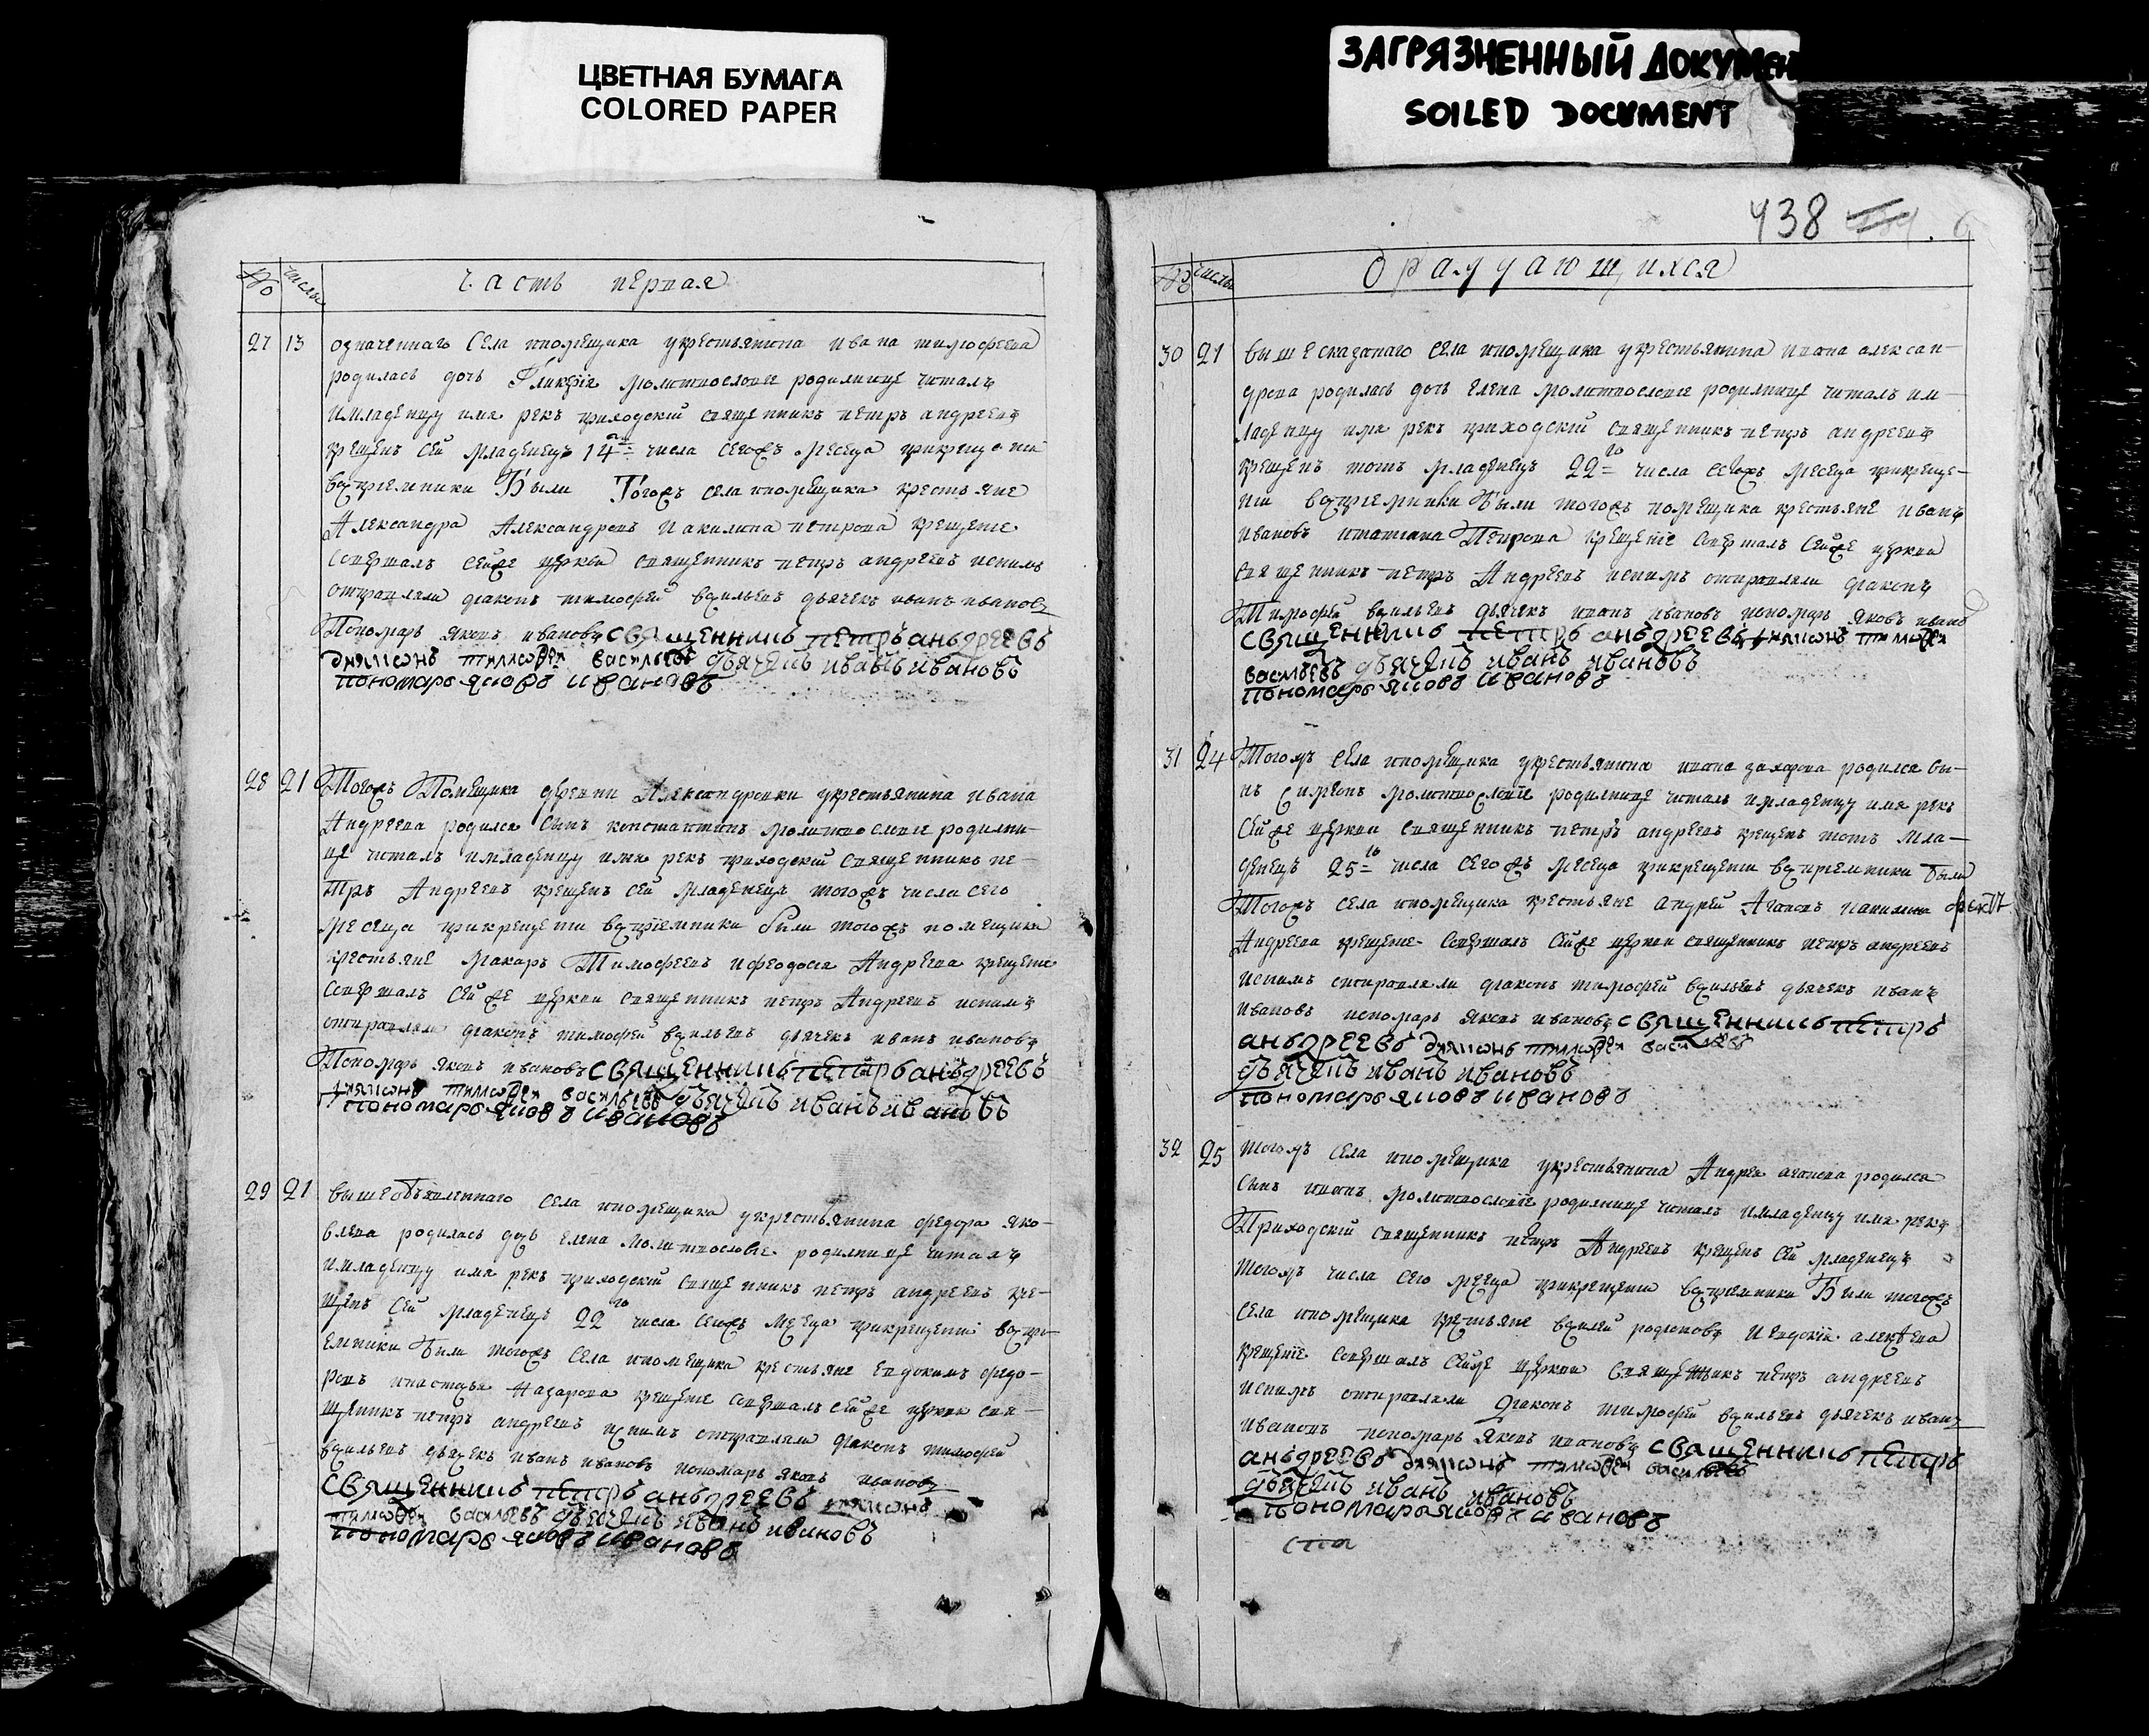 ЦВЕТНАЯ БУМАГА
COLORED PAPER
ЗАГРЯЗНЕННЫЙ ДОКУМЕН
SOILED DOCUMENT
438
№ числы
часть первая
27 13 означеннаго села ипомещика укрестьянина ивана тимофеева
родилась дочь Гликѣрїя молитвословие родилнице читалъ
имладенцу имя рекъ приходский священникъ петръ андреевъ
крещенъ сей младенецъ 14го числа сегожъ месеца прикрещении
восприемники Были Тогожъ села ипомещика крестьяне
Александра Александровъ иакилина петрова крещение
совершалъ сейже церкви священникъ петръ андреевъ иснимъ
отправляли диаконъ тимофей васильевъ дьячекъ иванъ ивановъ
Пономарь яковъ ивановъ священникъ петръ аньдреевъ
диаконъ тимофеи васильевъ дьячекъ иванъ ивановъ
пономарь яковъ ивановъ
28 21 Тогожъ Помещика деревни Александровки укрестьянина ивана
Андреева родился сынъ константинъ молитвословие родилни-
це читалъ имладенцу имя рекъ приходский священникъ пе-
тръ Андреевъ крещенъ сей младенецъ тогожъ числа сего
месеца прикрещении восприемники были тогожъ помещика
крестьяне макаръ Тимофеевъ ифеодосия Андреева крещение
совершалъ сейже церкви священникъ петръ Андреевъ иснимъ
отправляли диаконъ тимофей васильевъ дьячекъ иванъ ивановъ
Пономарь яковъ ивановъ священникъ петръ аньдреевъ
диаконъ тимофеи васильевъ дьячекъ иванъ ивановъ
пономарь яковъ ивановъ
29 21 вышеобъявленнаго села ипомещика укрестьянина федора яко-
влева родилась дочь елена молитвословие родилнице читалъ
имладенцу имя рекъ приходский священникъ петръ андреевъ кре-
щенъ сей младенецъ 22го числа сегожъ месеца прикрещении воспри-
емники были тогожъ села ипомещика крестьяне евдокимъ федо-
ровъ инастасья назарова крещение совершалъ сейже церкви свя-
щенникъ петръ андреевъ иснимъ отправляли диаконъ тимофей
васильевъ дьячекъ иванъ ивановъ пономарь яковъ ивановъ
священникъ петръ аньдреевъ диаконъ
тимофеи васильевъ дьячекъ иванъ ивановъ
пономарь яковъ ивановъ
№ числы
О раждающихся
30 21 вышесказанаго села ипомещика укрестьянина ивана алексан-
дрова родилась дочь елена молитвословие родилнице читалъ им-
ладенцу имя рекъ приходский священникъ петръ андреевъ
крещенъ тотъ младенецъ 22го числа сегожъ месеца прикреще-
нии восприемники были тогожъ помещика крестьяне иванъ
ивановъ итатиана Петрова крещение совершалъ сейже церкви
священникъ петръ Андреевъ иснимъ отправляли диаконъ
Тимофей васильевъ дьячекъ иванъ ивановъ пономарь яковъ ивано
священникъ петръ аньдреевъ диаконъ тимофеи
васильевъ дьячекъ иванъ ивановъ
пономарь яковъ ивановъ
31 24 Тогожъ села ипомещика укрестьянина ивана захарова родился сы-
нъ симеонъ молитвословие родилнице читалъ имладенцу имя рекъ
сейже церкви священникъ петръ андреевъ крещенъ тотъ мла-
денецъ 25го числа сегожъ месеца прикрещении восприемники были
Тогожъ села ипомещика крестьяне андрей Агаповъ иакилина
Андреева крещение совершалъ сейже церкви священникъ петръ андреевъ
иснимъ отправляли диаконъ тимофей васильевъ дьячекъ иванъ
ивановъ пономарь яковъ ивановъ священникъ петръ
аньдреевъ диаконъ тимофеи васильевъ
дьячекъ иванъ ивановъ
пономарь яковъ ивановъ
32 25 тогожъ села ипомещика укрестьянина Андрея агапова родился
сынъ иванъ молитвословие родилнице читалъ имладенцу имя рекъ
Приходский священникъ петръ Андреевъ крещенъ сей младенецъ
тогожъ числа сего месеца прикрещении восприемники Были тогожъ
села ипомещика крестьяне василей родионовъ иевдокия
крещение совершалъ сейже церкви священникъ петръ андреевъ
иснимъ отправляли диаконъ тимофей васильевъ дьячекъ иванъ
ивановъ пономарь яковъ ивановъ священникъ петръ
аньдреевъ диаконъ тимофеи васильевъ
дьячекъ иванъ ивановъ
пономарь яковъ ивановъ